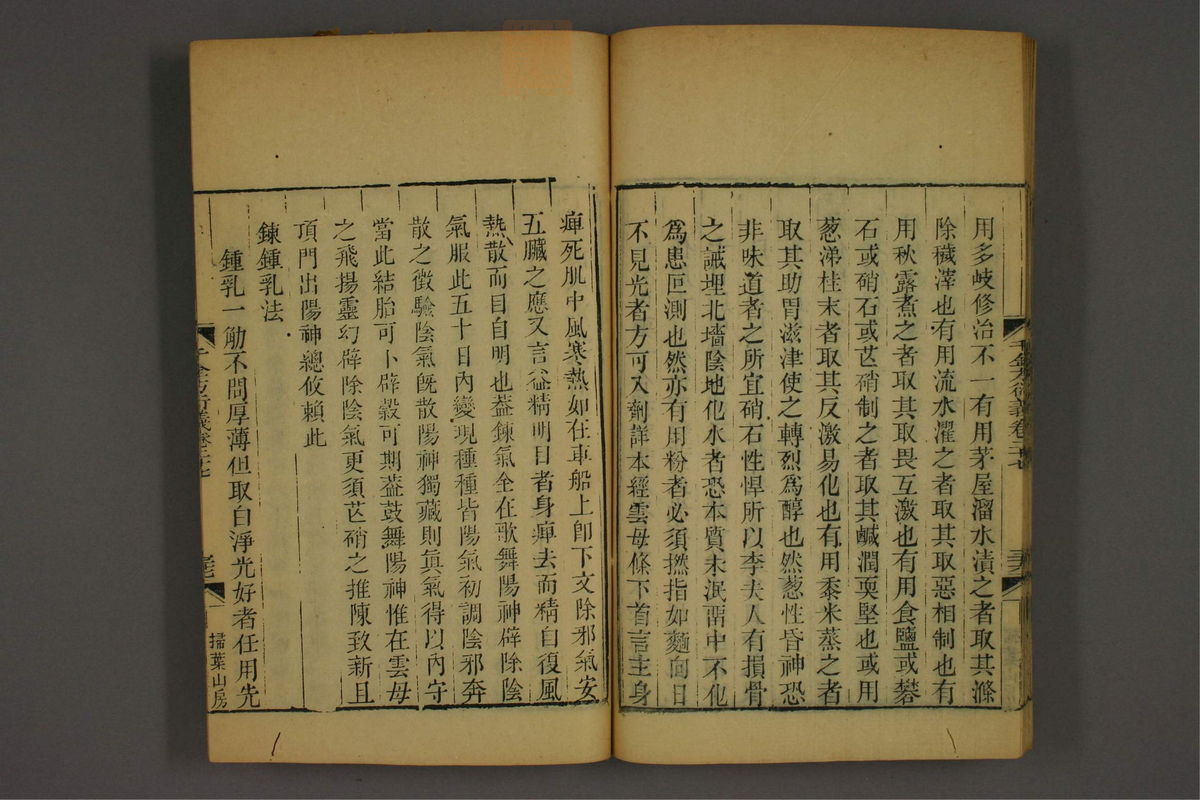 用多岐修治不一有用茅屋溜水漬之者取其滌
除穢滓也有用流水濯之者取其取惡相制也有
用秋露煮之者取其取畏互激也有用食鹽或礬
石或硝石或芒硝制之者取其鹹潤耎堅也或用
葱涕桂末者取其反激易化也有用黍米蒸之者
取其助胃滋津使之轉烈爲醇也然葱性昏神恐
非味道者之所宜硝石性悍所以李夫人有損骨
之誡埋北墻陰地化水者恐本質未泯嚙中不化
爲患叵測也然亦有用粉者必須撚指如麵向日
不見光者方可入劑詳本經雲母條下首言主身
痺死肌中風寒熱如在車船上卽下文除邪氣安
五臟之應又言益精明目者身痺去而精自復風
熱散而目自明也葢鍊氣全在歌舞陽神辟除陰
氣服此五十日內變現種種皆陽氣初調陰邪奔
散之徵驗陰氣旣散陽神獨藏則眞氣得以內守
當此結胎可卜辟穀可期葢鼓舞陽神惟在雲母
之飛揚靈幻辟除陰氣更須芒硝之推陳致新且
頂門出陽神總攸賴此
鍊鍾乳法
鍾乳一觔不問厚薄但取白淨光好者任用先
掃葉山房